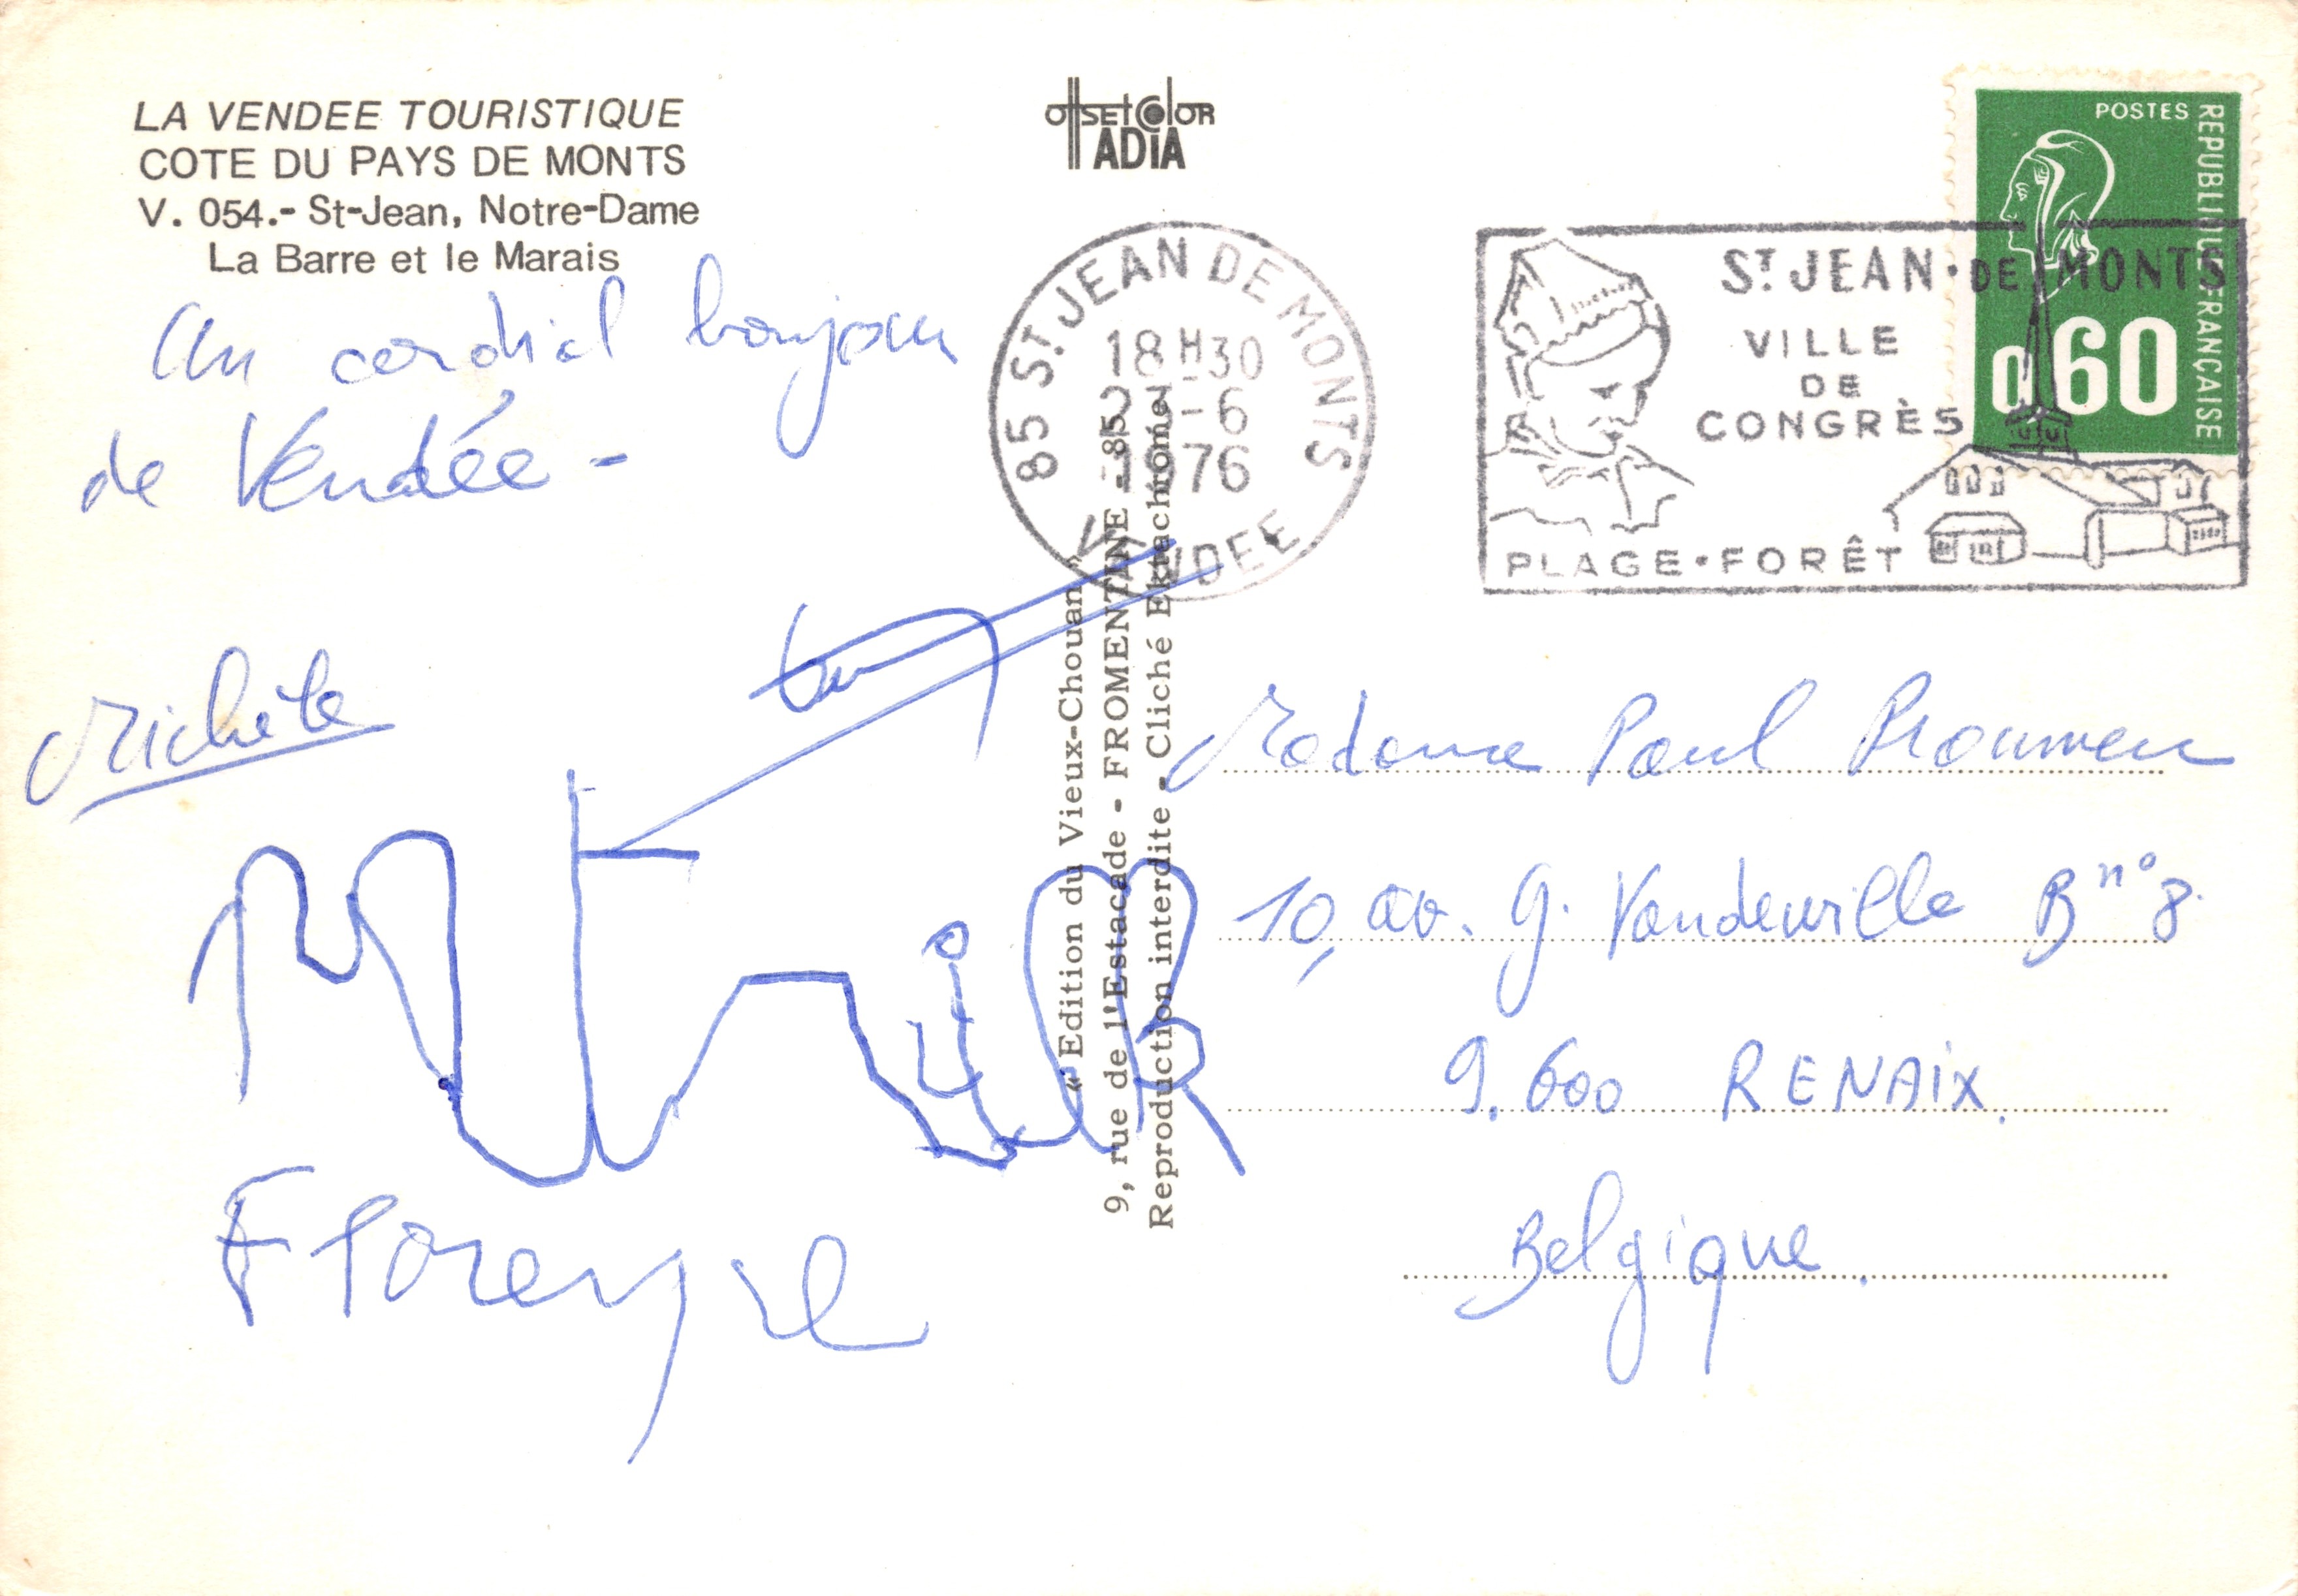 LA VENDEE TOURISTIQUE
COTE DU PAYS DE MONTS
V. 054.- St-Jean, Notre-Dame
La Barre et le Marais
Un cordial bonjour
de Vendée -
Michèle
offsetcolor
ADIA
85 ST. JEAN DE MONTS
18 H 30
-6
1976
VENDEE
ST JEAN • DE MONTS
VILLE
DE
CONGRÈS
PLAGE • FORÊT
POSTES
REPUBLIQUE FRANÇAISE
0,60
« Edition du Vieux-Chouan »
9, rue de l'Estacade - FROMENTINE - 85
Reproduction interdite - Cliché Ektachrome
Madame Paul
10, av. G. Vandewille B n° 8.
9.600 RENAIX.
Belgique.